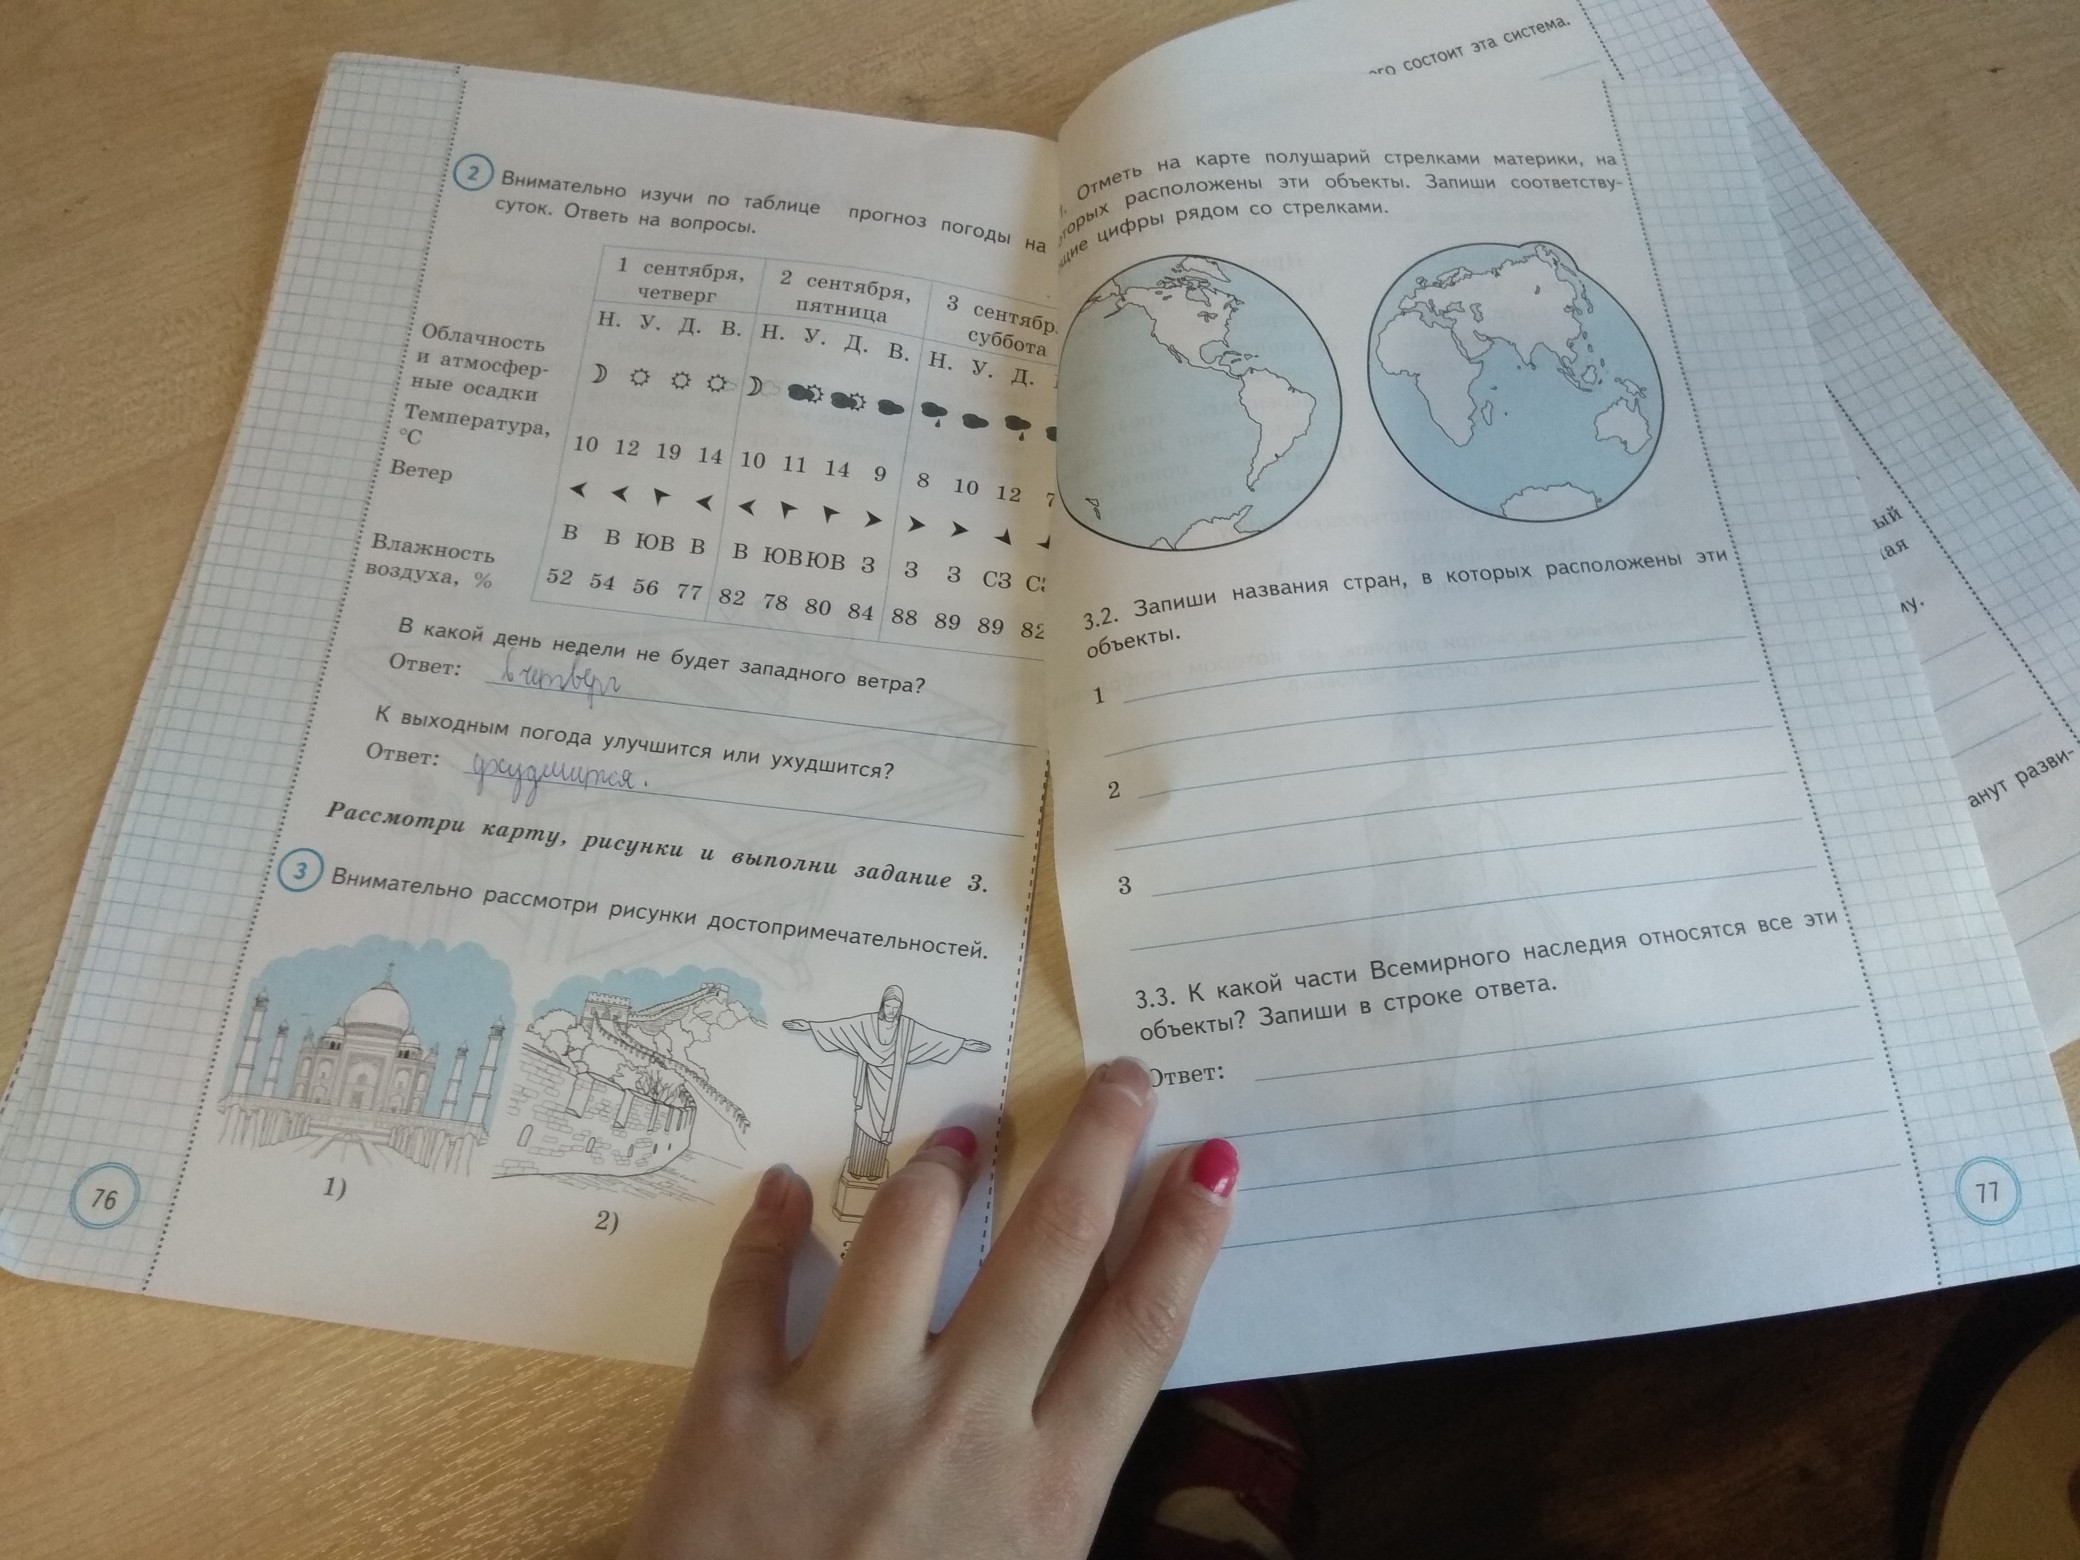 2 Внимательно изучи по таблице прогноз погоды на
суток. Ответь на вопросы.
1 сентября, четверг 2 сентября, пятница 3 сентябр суббота
Н. У. Д. В. Н. У. Д. В. Н. У. Д.
Облачность
и атмосфер-
ные осадки
Температура, °C 10 12 19 14 10 11 14 9 8 10 12 7
Ветер
В В ЮВ В В ЮВ ЮВ З З З СЗ
Влажность
воздуха, % 52 54 56 77 82 78 80 84 88 89 89 82
В какой день недели не будет западного ветра?
Ответ: в четверг
К выходным погода улучшится или ухудшится?
Ответ: ухудшится.
Рассмотри карту, рисунки и выполни задание 3.
3 Внимательно рассмотри рисунки достопримечательностей.
1)
2)
76
ого состоит эта система.
Отметь на карте полушарий стрелками материки, на
оторых расположены эти объекты. Запиши соответству-
щие цифры рядом со стрелками.
3.2. Запиши названия стран, в которых расположены эти
объекты.
1
2
3
3.3. К какой части Всемирного наследия относятся все эти
объекты? Запиши в строке ответа.
Ответ:
77
анут разви-